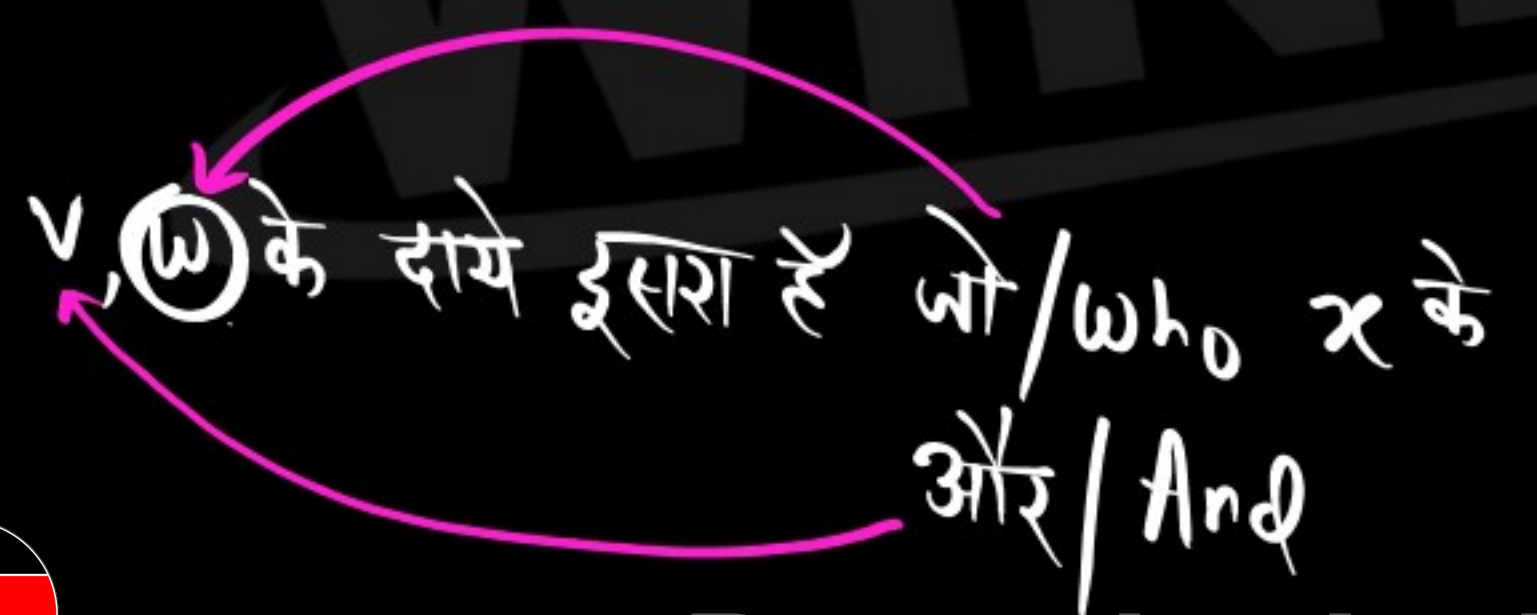 V, W के दाये इसरा है जो/who x के
और/And